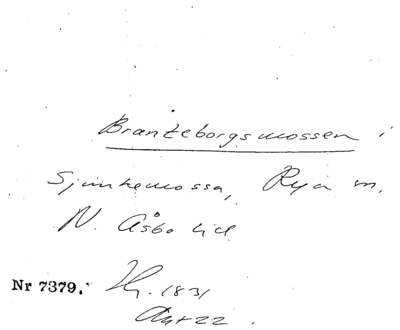 Branteborgsmossen i
Sjunkemossa, Rya sn,
N. Åsbo hd
Nr 7379. Hy. 1831
Akt 22.